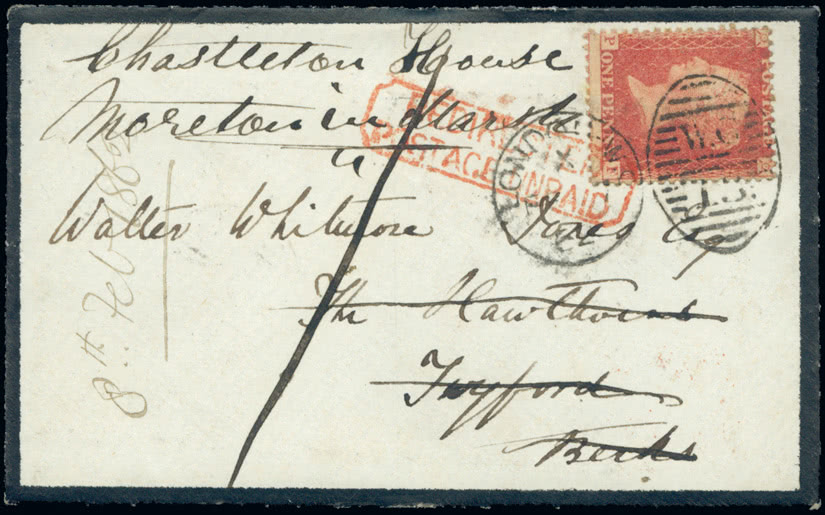 Chastleton House
Moreton in Marsh
"
Walter Whitmore Jones Esq
The Hawthorns
Twyford
Berks
8th Feb 1862
POSTAGE UNPAID
LONDON
W.C
P ONE PENNY F
POSTAGE